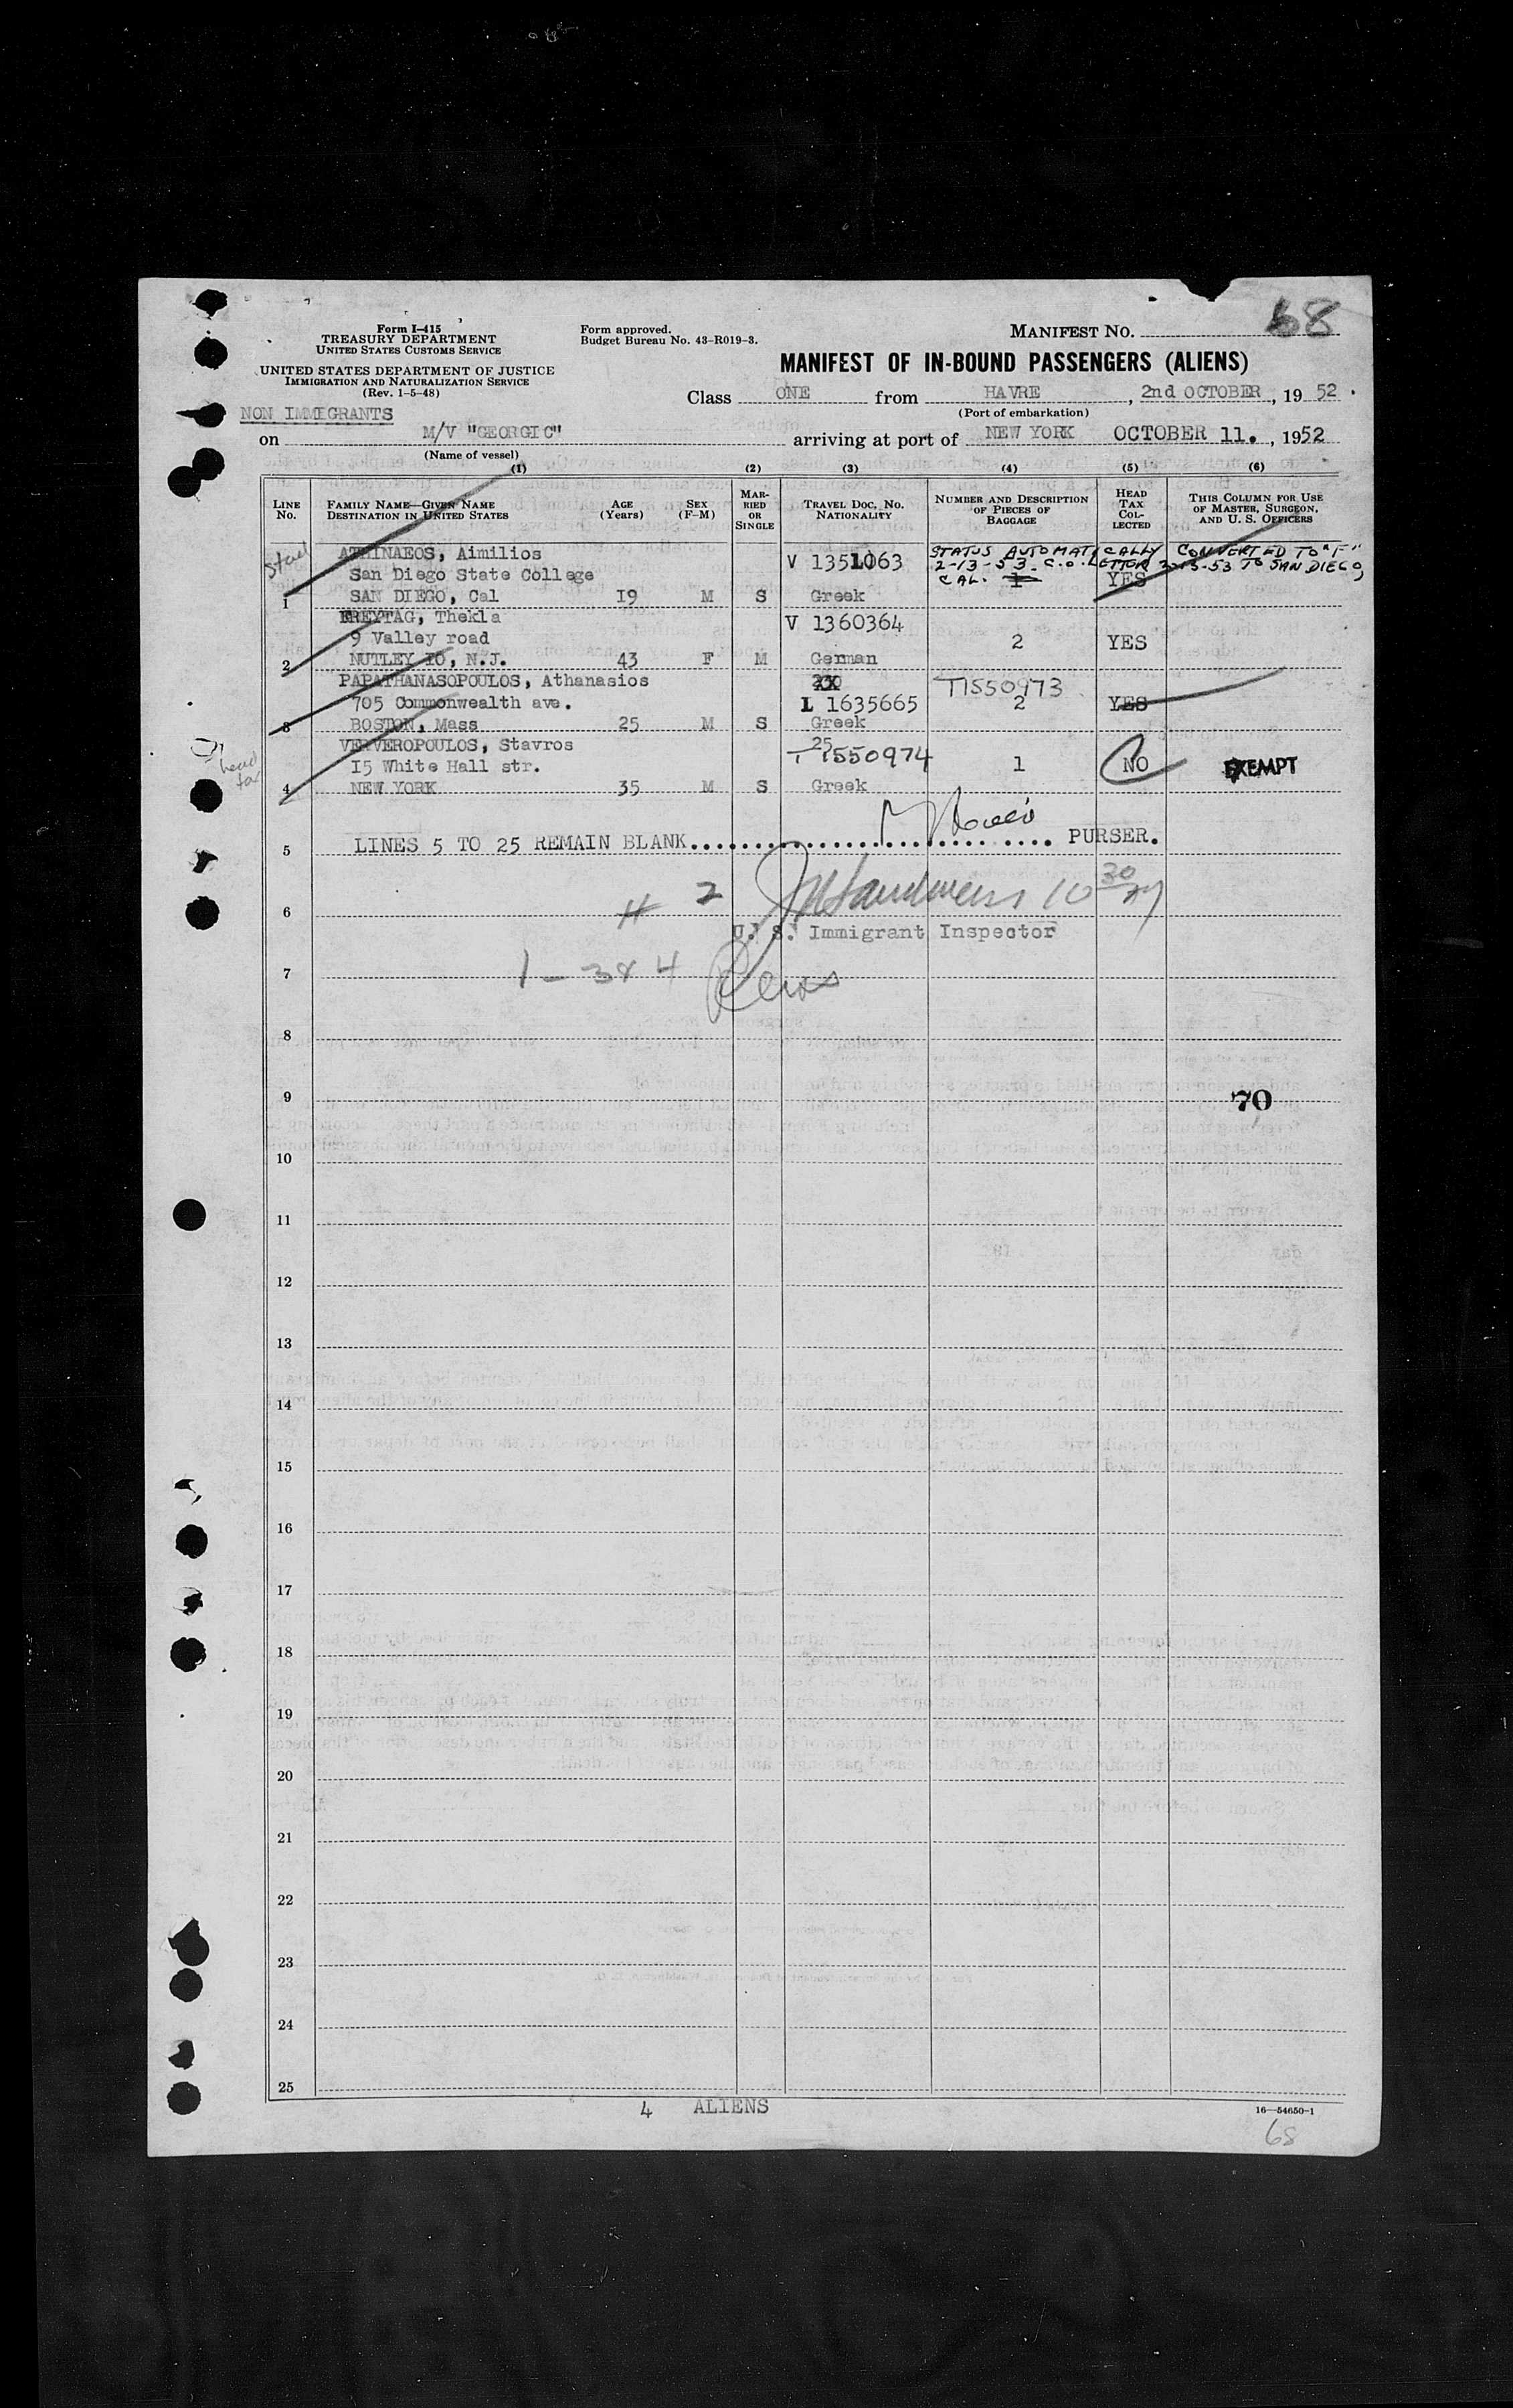 68
Form I-415
TREASURY DEPARTMENT
UNITED STATES CUSTOMS SERVICE
Form approved.
Budget Bureau No. 43-R019-3.
MANIFEST NO.
UNITED STATES DEPARTMENT OF JUSTICE
IMMIGRATION AND NATURALIZATION SERVICE
(Rev. 1-5-48)
MANIFEST OF IN-BOUND PASSENGERS (ALIENS)
Class ONE from HAVRE, 2nd OCTOBER, 1952.
(Port of embarkation)
NON IMMIGRANTS
on M/V "GEORGIC" arriving at port of NEW YORK OCTOBER 11., 1952
(Name of vessel)
(1) (2) (3) (4) (5) (6)
LINE No. FAMILY NAME—GIVEN NAME DESTINATION IN UNITED STATES AGE (Years) SEX (F-M) MARRIED OR SINGLE TRAVEL DOC. NO. NATIONALITY NUMBER AND DESCRIPTION OF PIECES OF BAGGAGE HEAD TAX COLLECTED THIS COLUMN FOR USE OF MASTER, SURGEON, AND U. S. OFFICERS
ATHINAEOS, Aimilios V 1351063 STATUS AUTOMATICALLY CONVERTED TO "F"
San Diego State College 2-13-53 C.O. LETTER 2-13-53 TO SAN DIEGO,
CAL. 1 YES
1 SAN DIEGO, Cal 19 M S Greek
FREYTAG, Thekla V 1360364
9 Valley road 2 YES
2 NUTLEY 10, N.J. 43 F M German
PAPATHANASOPOULOS, Athanasios T1550973
705 Commonwealth ave. L 1635665 2 YES
3 BOSTON, Mass 25 M S Greek
VERVEROPOULOS, Stavros 25
T 1550974
15 White Hall str. 1 NO EXEMPT
head tax
4 NEW YORK 35 M S Greek
5 LINES 5 TO 25 REMAIN BLANK.............................. PURSER.
6 2 10 30
U. S. Immigrant Inspector
7 1 - 3 & 4
8
9 70
10
11
12
13
14
15
16
17
18
19
20
21
22
23
24
25
4 ALIENS
16—54650-1
68